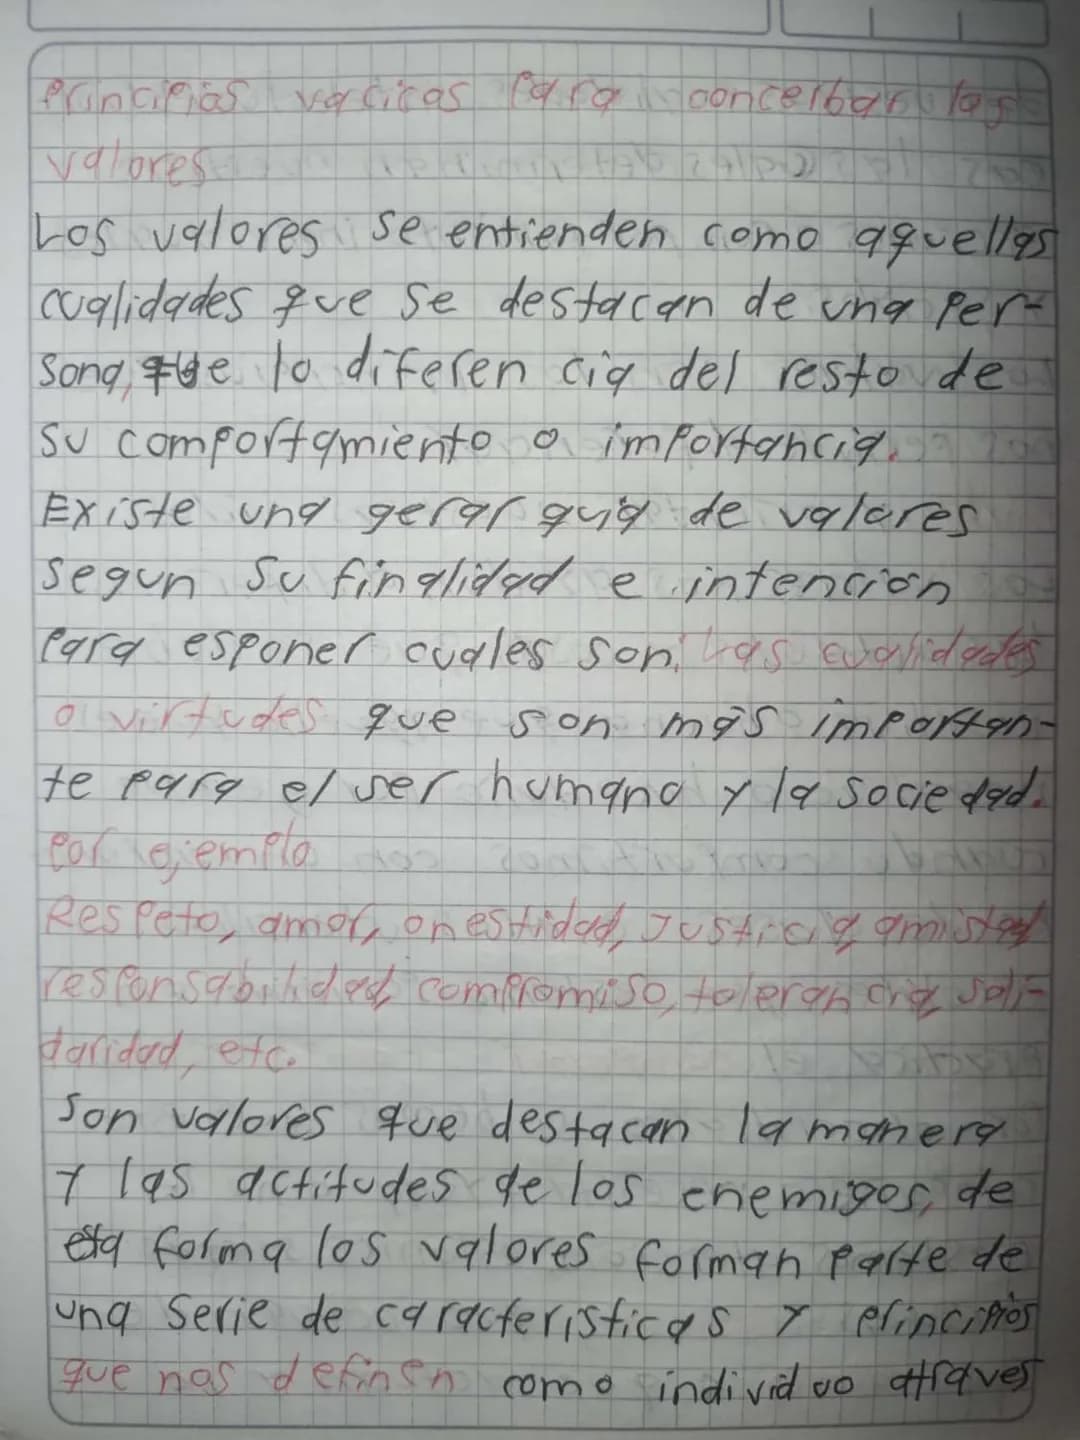 Principios vacicos para concerbar los
valores
Los valores se entienden como aquellas
cualidades que se destacan de una per-
sona, que lo diferen cia del resto de
su comportamiento o importancia.
Existe una gerar quia de valores
segun su finalidad e intención
para esponer cuales son. Las cualidades
o virtudes que son más importan-
te para el ser humano y la sociedad.
Por ejemplo
Respeto, amor, onestidad, Justicia, amistad
responsabilidad, compromiso, tolerancia, soli-
daridad, etc.
Son valores que destacan la manera
y las actitudes de los enemigos, de
esta forma los valores forman parte de
una serie de caracteristicas y principios
que nos definen como individuo atraves